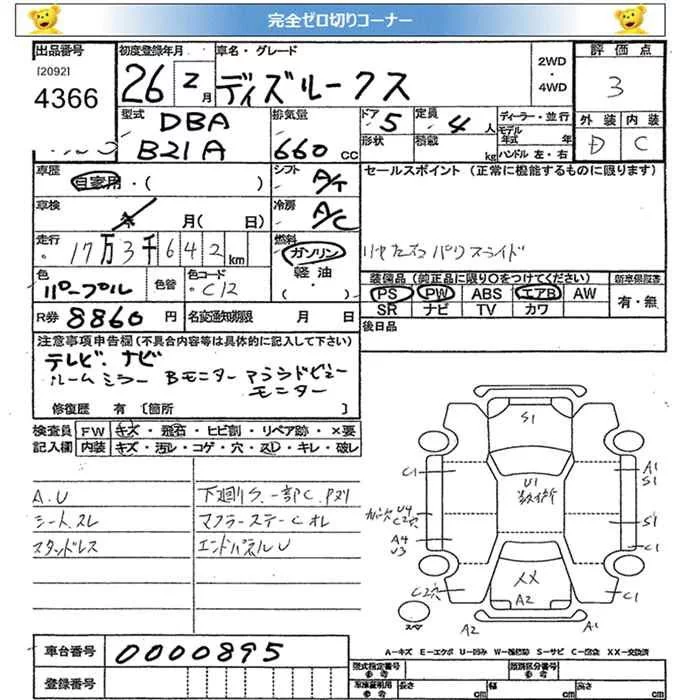 完全ゼロ切りコーナー
出品番号 初度登録年月 車名・グレード 評価点
[2092] 4366 26 2月 ディズルークス 2WD ・ 4WD 3
型式 DBA B21A 排気量 660cc ドア 5 定員 4人 ディーラー・並行 外装 内装
形状 積載 kg モデル年式 年 ハンドル 左・右 D C
車歴 自家用・( ) シフト A/T セールスポイント (正常に機能するものに限ります)
車検 年 月( 日) 冷房 A/C
走行 17万3千642km 燃料 ガソリン 軽油 ・( )
色 パープル 色替 色コード C12
装備品(純正品に限り○をつけてください) 新車保証書
PS PW ABS エアB AW 有・無
SR ナビ TV カワ
R券 8860円 名変通知期限 月 日 後日品
注意事項申告欄(不具合内容等は具体的に記入して下さい)
テレビ、ナビ
ルームミラー Bモニター アラウンドビュー
モニター
修復歴 有〔箇所 〕
検査員 FW キズ・飛石・ヒビ割・リペア跡・×要
記入欄 内装 キズ・汚レ・コゲ・穴・スレ・キレ・破レ
A.U 下廻りS、一部C
シートスレ マフラーステーCオレ
スタッドレス エンドパネルU
S1
C1 U1 A1
S1
U4 C2穴 S1
A4
U3 C1
C2穴 XX C1
A2
スペア A2 A1
A-キズ E-エクボ U-凹み W-補修跡 S-サビ C-腐食 XX-交換済
車台番号 0000895 型式指定番号 参考 類別区分番号 参考
登録番号 車検証明用 参考 長さ cm 幅 cm 高さ cm